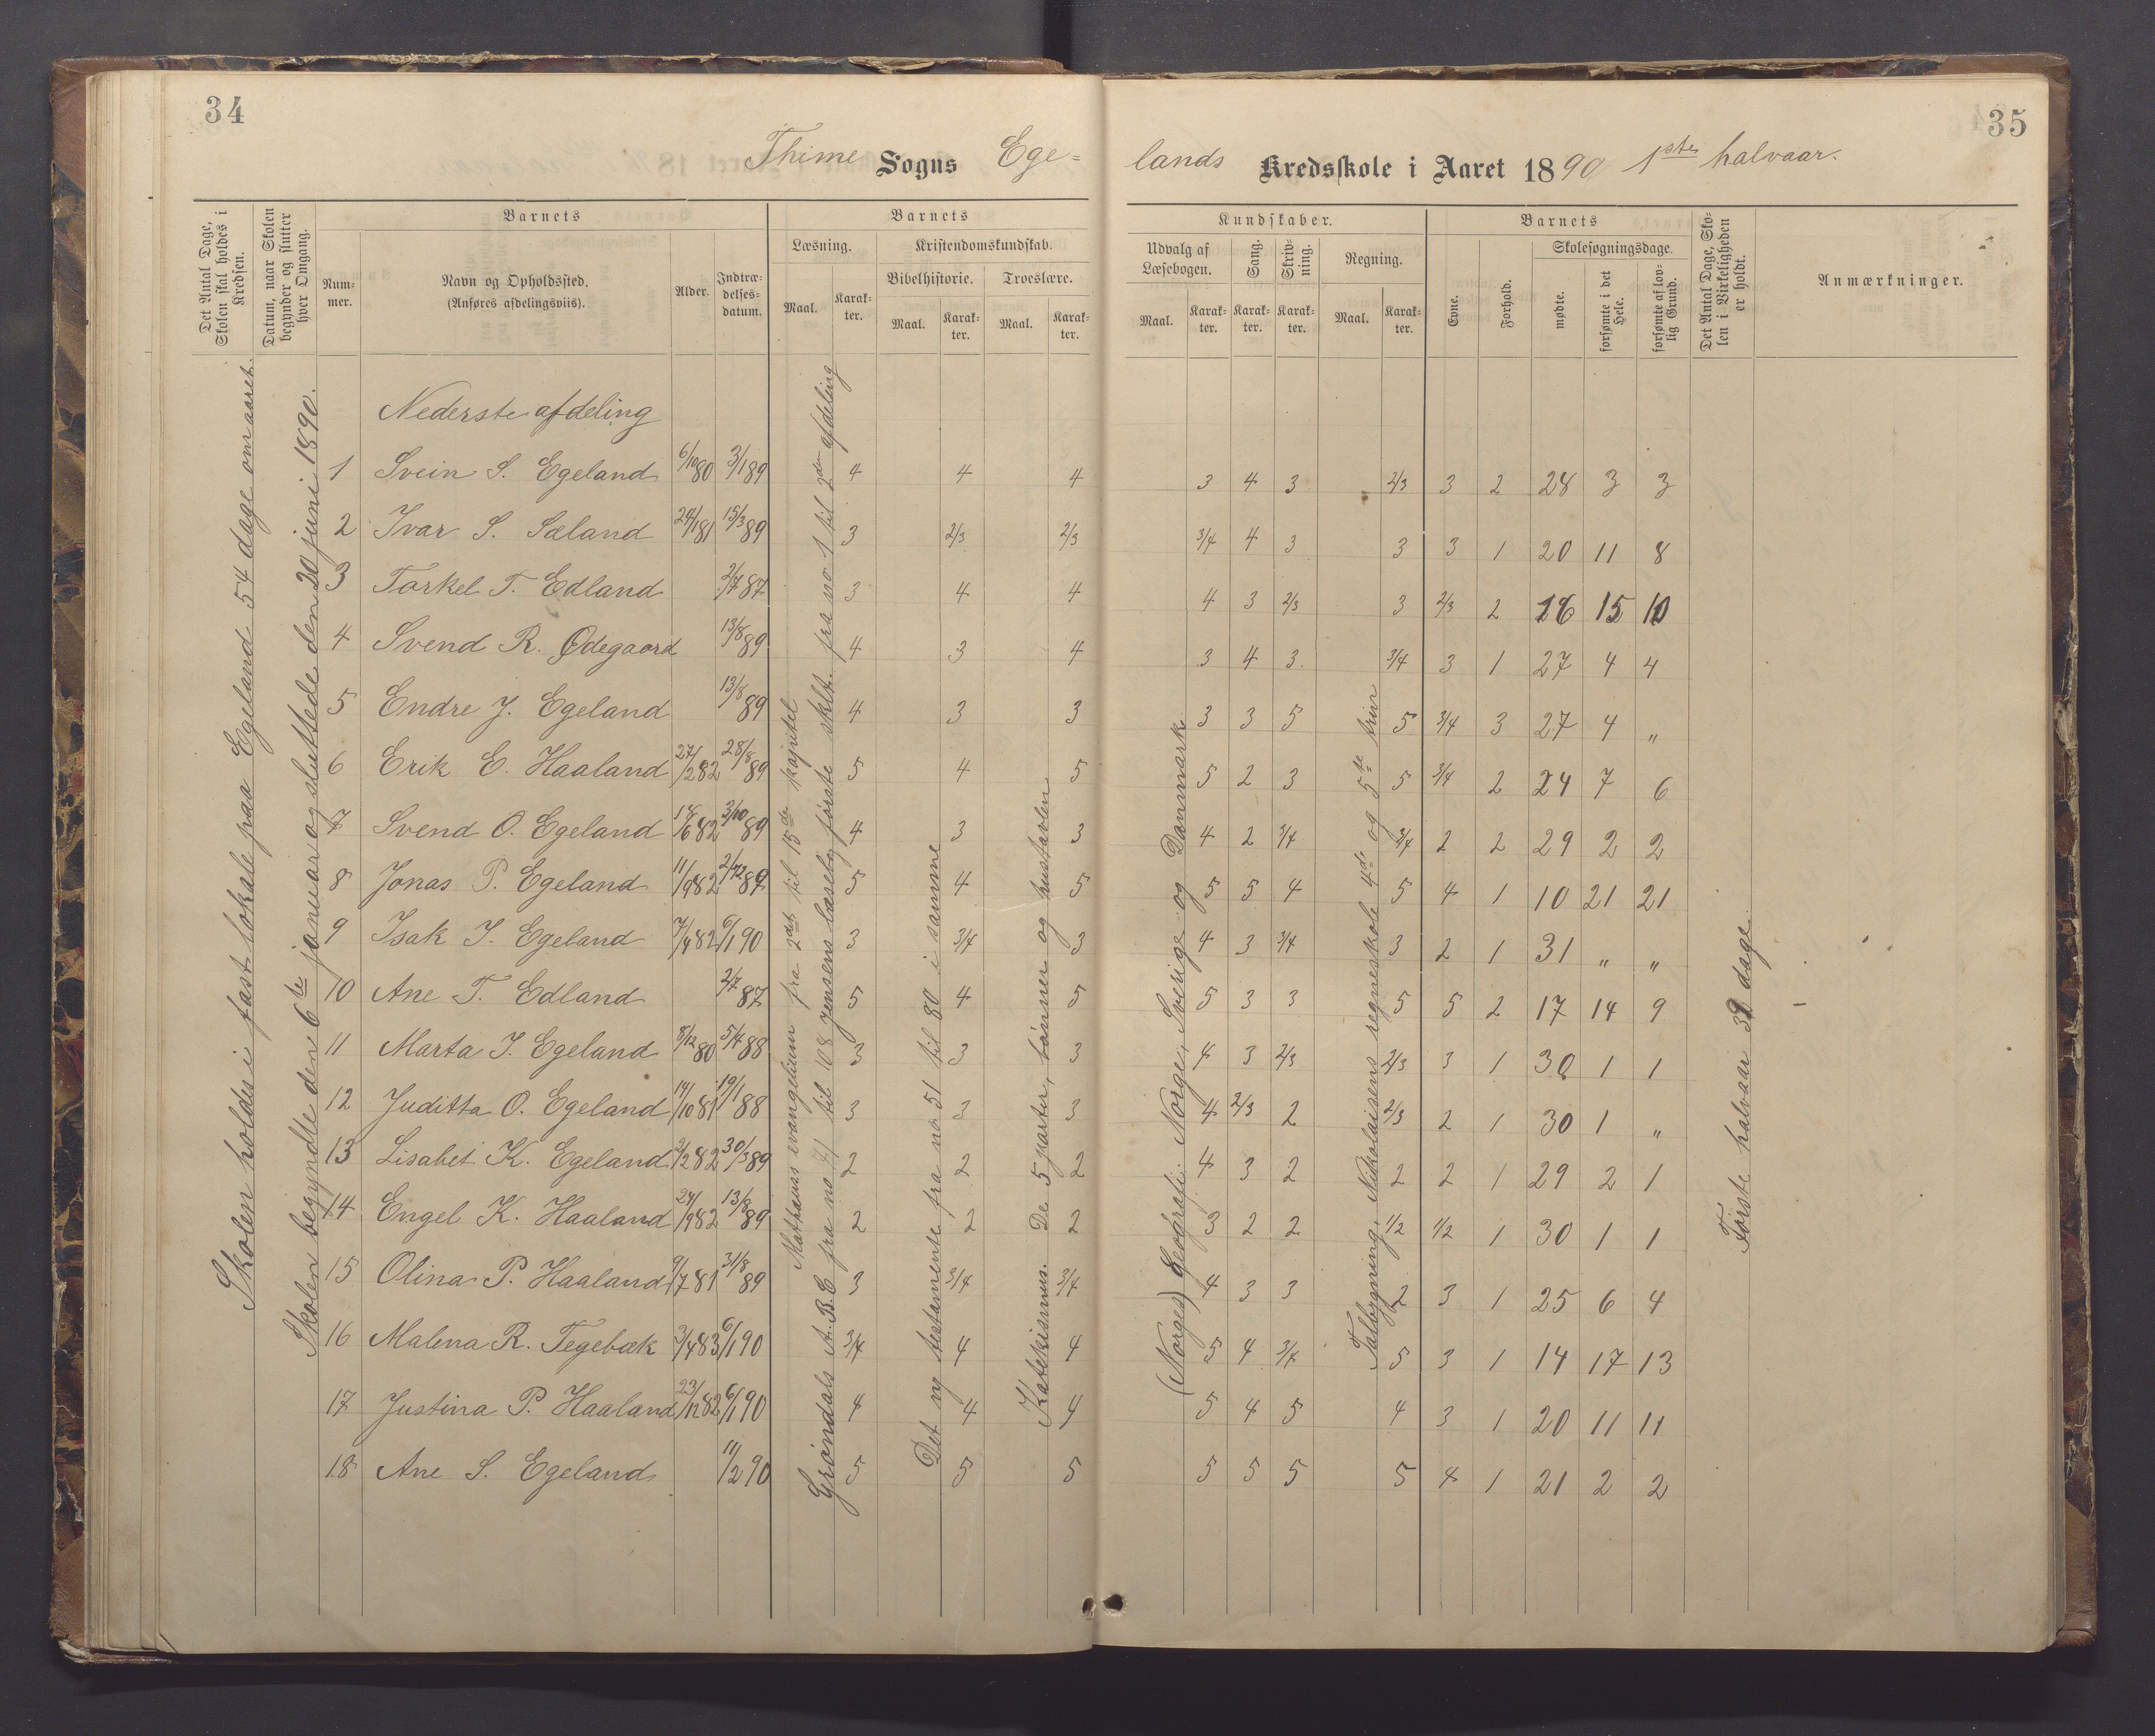 34
35
Thime Sogns Ege=
lands Kredsskole i Aaret 1890 1ste halvaar.
Det Antal Dage, Skolen skal holdes i Kredsen.
Datum, naar Skolen begynder og slutter hver Omgang.
Barnets
Nummer.
Navn og Opholdssted.
(Anføres afdelingsviis).
Alder.
Indtrædelsesdatum.
Barnets
Læsning.
Kristendomskundskab.
Bibelhistorie.
Troeslære.
Maal. Karakter. Maal. Karakter. Maal. Karakter.
Kundskaber.
Udvalg af Læsebogen.
Sang.
Skrivning.
Regning.
Maal. Karakter. Karakter. Karakter. Maal. Karakter.
Barnets
Evne.
Forhold.
Skolesøgningsdage.
mødte.
forsømte i det Hele.
forsømte af lovlig Grund.
Det Antal Dage, Skolen i Virkeligheden er holdt.
Anmærkninger.
Skolen holdes i fast lokale paa Egeland 54 dage om aaret.
Skolen begyndte den 6te januar og sluttede den 20 juni 1890.
Mathæus evangelium fra 2det til 15de kapitel
Grøndals A.B.C fra no 41 til 108 Jensens læsebog første sklt. fra no 1 til 2den afdeling
Det ny testamente fra no 51 til 80 i samme
Katekismus. De 5 parter, bønner og hustavlen
(Norges) Geografi: Norge, Sverige og Danmark.
Talbygning, Nikolaisens regneskole 4de og 5te trin
Første halvaar 31 dage
Nederste afdeling
1 Svein S. Egeland 6/10 80 3/1 89 4 4 4 3 4 3 2/3 3 2 28 3 3
2 Ivar S. Sæland 24/1 81 15/3 89 3 2/3 2/3 3/4 4 3 3 3 1 20 11 8
3 Torkel T. Edland 2/7 87 3 4 4 4 3 2/3 3 2/3 2 16 15 10
4 Svend R. Ødegaard 13/8 89 4 3 4 3 4 3 3/4 3 1 27 4 4
5 Endre J. Egeland 13/8 89 4 3 3 3 3 5 5 3/4 3 27 4 "
6 Erik E. Haaland 27/2 82 28/8 89 5 4 5 5 2 3 5 3/4 2 24 7 6
7 Svend O. Egeland 18/6 82 3/10 89 4 3 3 4 2 3/4 3/4 2 2 29 2 2
8 Jonas P. Egeland 11/9 82 2/12 89 5 4 5 5 5 4 5 4 1 10 21 21
9 Isak I. Egeland 7/4 82 6/1 90 3 3/4 3 4 3 3/4 3 2 1 31 " "
10 Ane T. Edland 2/7 87 5 4 5 5 3 3 5 5 2 17 14 9
11 Marta I. Egeland 8/12 80 5/4 88 3 3 3 4 3 2/3 2/3 3 1 30 1 1
12 Juditta O. Egeland 14/10 81 19/1 88 3 3 3 4 2/3 2 2/3 2 1 30 1 "
13 Lisabet K. Egeland 2/2 82 30/3 89 2 2 2 4 3 2 2 2 1 29 2 1
14 Engel K. Haaland 24/9 82 13/8 89 2 2 2 3 2 2 1/2 1/2 1 30 1 1
15 Olina P. Haaland 9/7 81 31/8 89 3 3/4 3/4 4 3 3 2 3 1 25 6 4
16 Malena R. Tegebæk 3/4 83 6/1 90 3/4 4 4 5 4 3/4 5 3 1 14 17 13
17 Justina P. Haaland 23/12 82 6/1 90 4 4 4 5 4 5 4 3 1 20 11 11
18 Ane S. Egeland 11/2 90 5 5 5 5 5 5 5 4 1 21 2 2